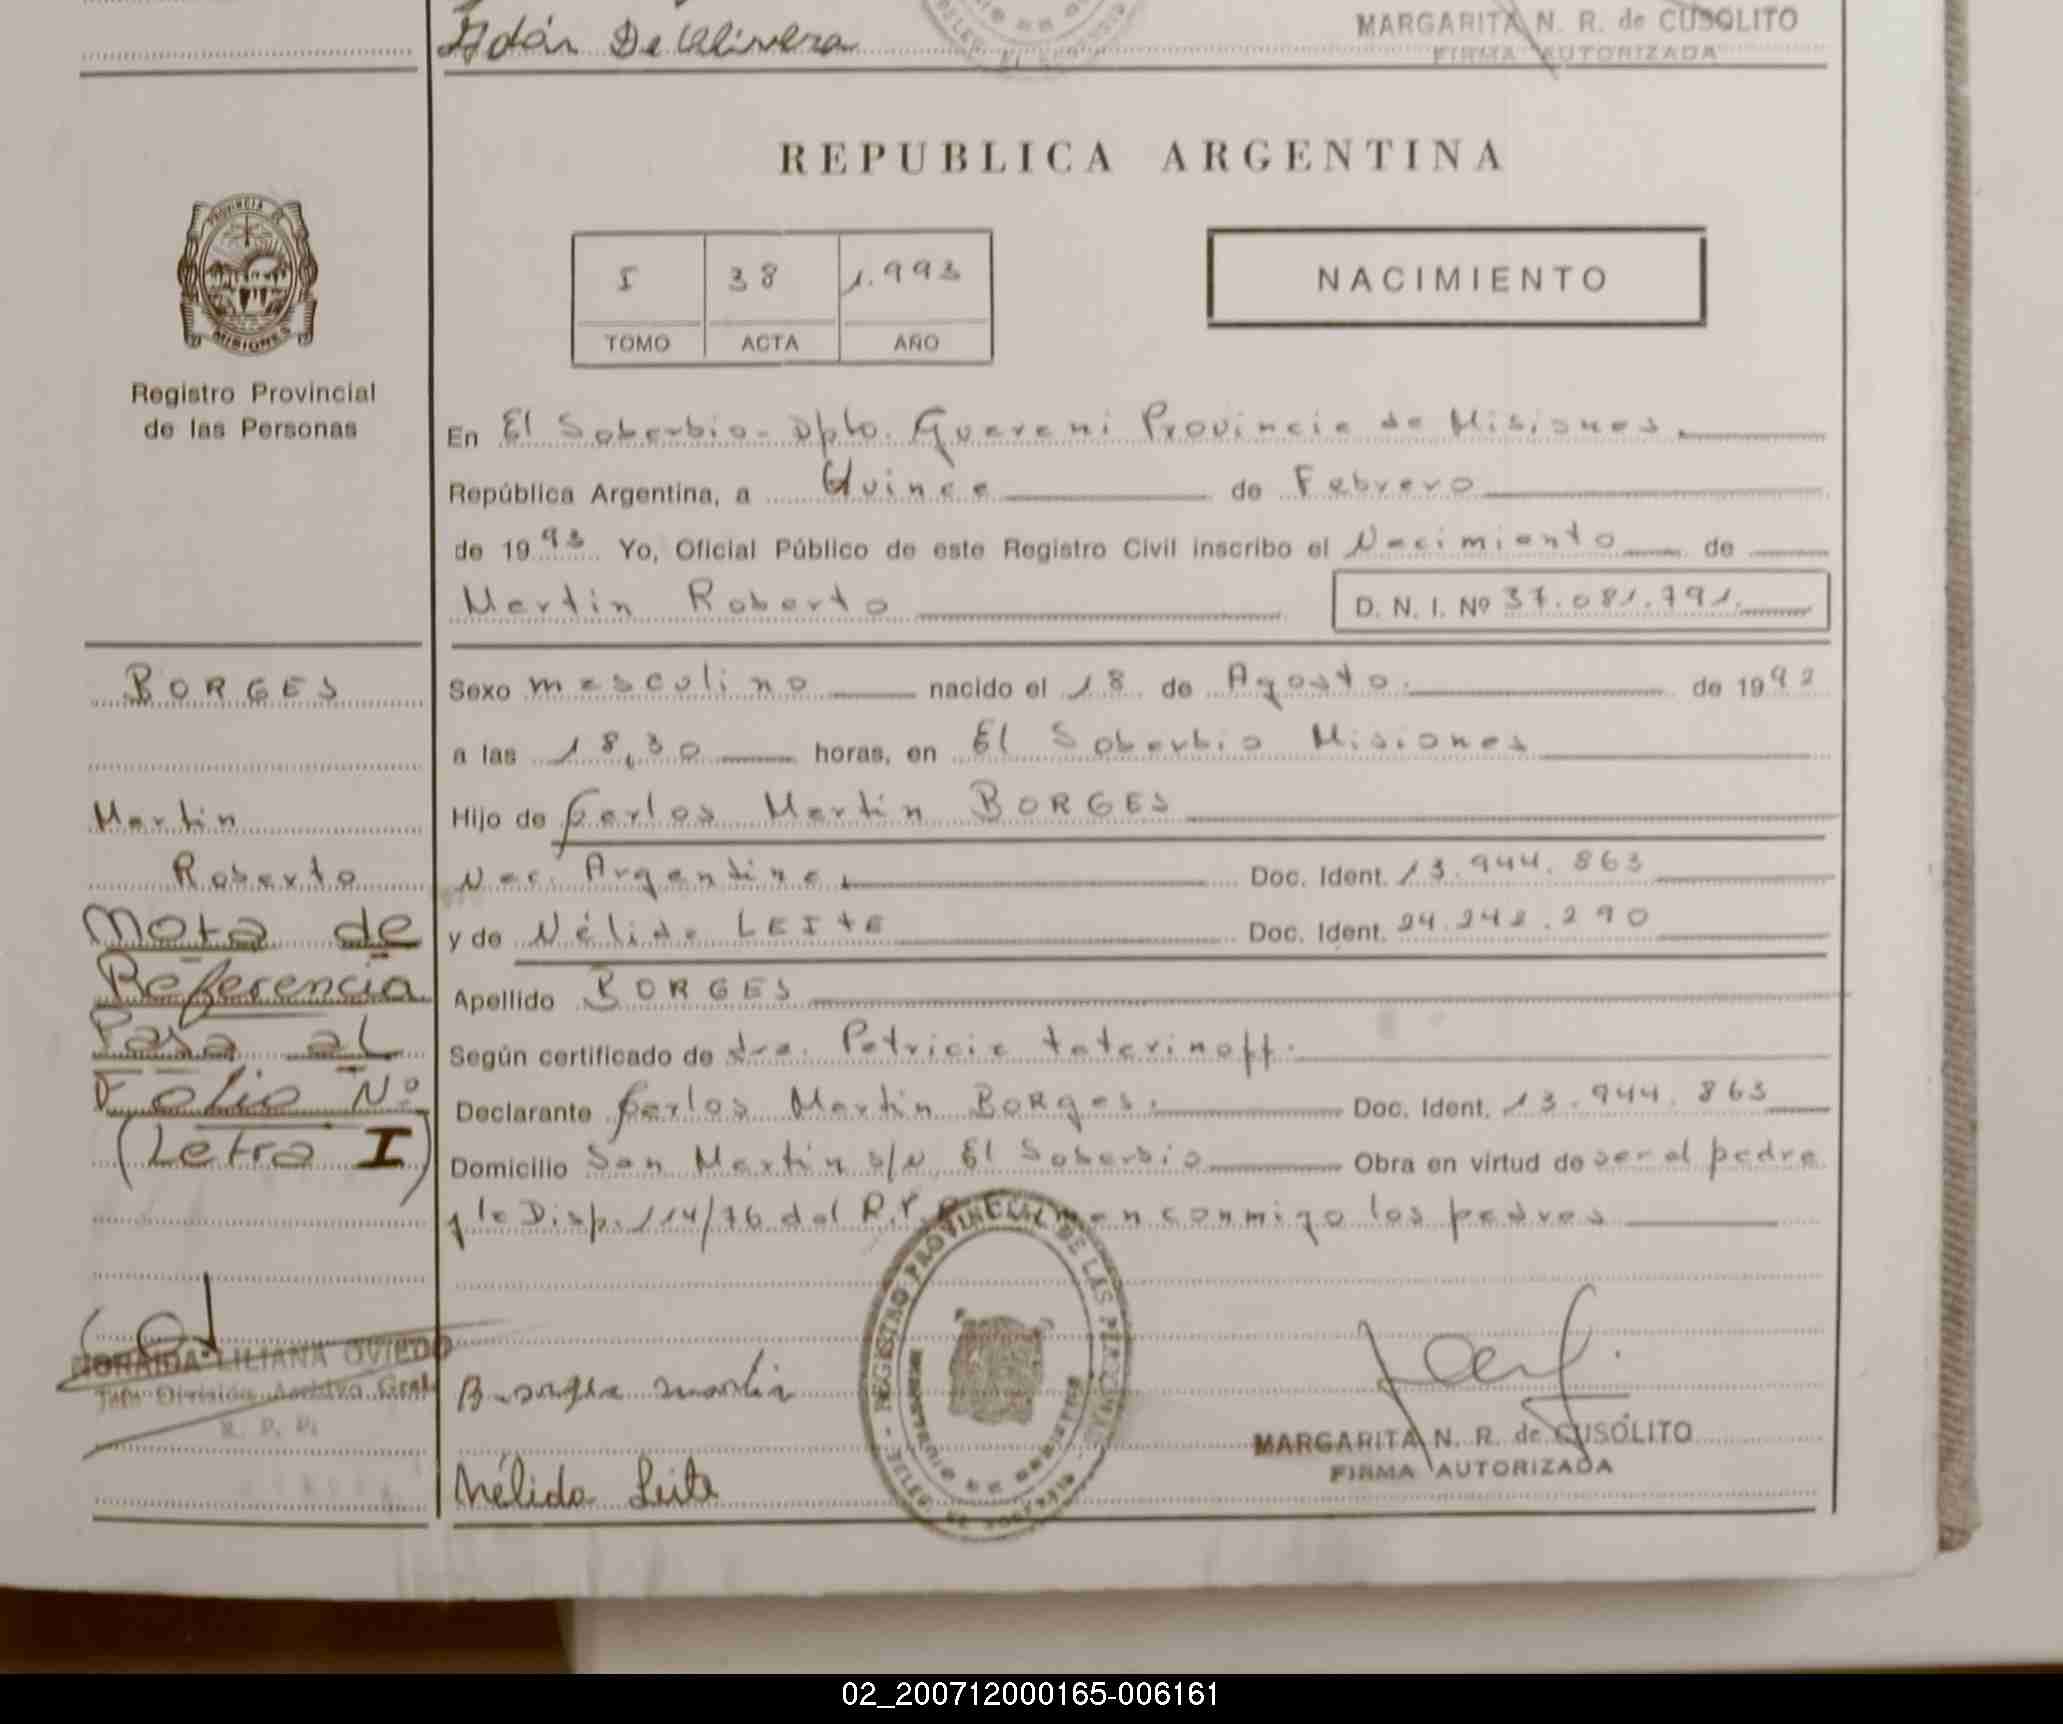 Adán De Olivera
MARGARITA N. R. de CUSOLITO
FIRMA AUTORIZADA
REPUBLICA ARGENTINA
PROVINCIA DE
MISIONES
Registro Provincial
de las Personas
I 38 1.993
TOMO ACTA AÑO
NACIMIENTO
En El Soberbio - Dpto. Guarani Provincia de Misiones.
República Argentina, a Quince de Febrero
de 1993 Yo, Oficial Público de este Registro Civil inscribo el Nacimiento de
Martin Roberto D. N. I. Nº 37.081.791.
BORGES
Martin
Roberto
Nota de
Referencia
Pasa al
Folio Nº
(Letra I)
Sexo masculino nacido el 18 de Agosto. de 1992
a las 18,30 horas, en El Soberbio Misiones
Hijo de Carlos Martin BORGES
Nac. Argentina. Doc. Ident. 13.944.863
y de Nélida LEITE Doc. Ident. 24.242.290
Apellido BORGES
Según certificado de dra. Patricia tatarinoff.
Declarante Carlos Martin Borges. Doc. Ident. 13.944.863
Domicilio San Martin s/n El Soberbio Obra en virtud de ser el padre
y la Disp. 114/76 del R.P. conmigo los padres
LILIANA OVIEDO
Jefe División Archivo Gral
R. P. P.
Nélida Leite
REGISTRO PROVINCIAL DE LAS PERSONAS
MARGARITA N. R. de CUSÓLITO
FIRMA AUTORIZADA
02_200712000165-006161